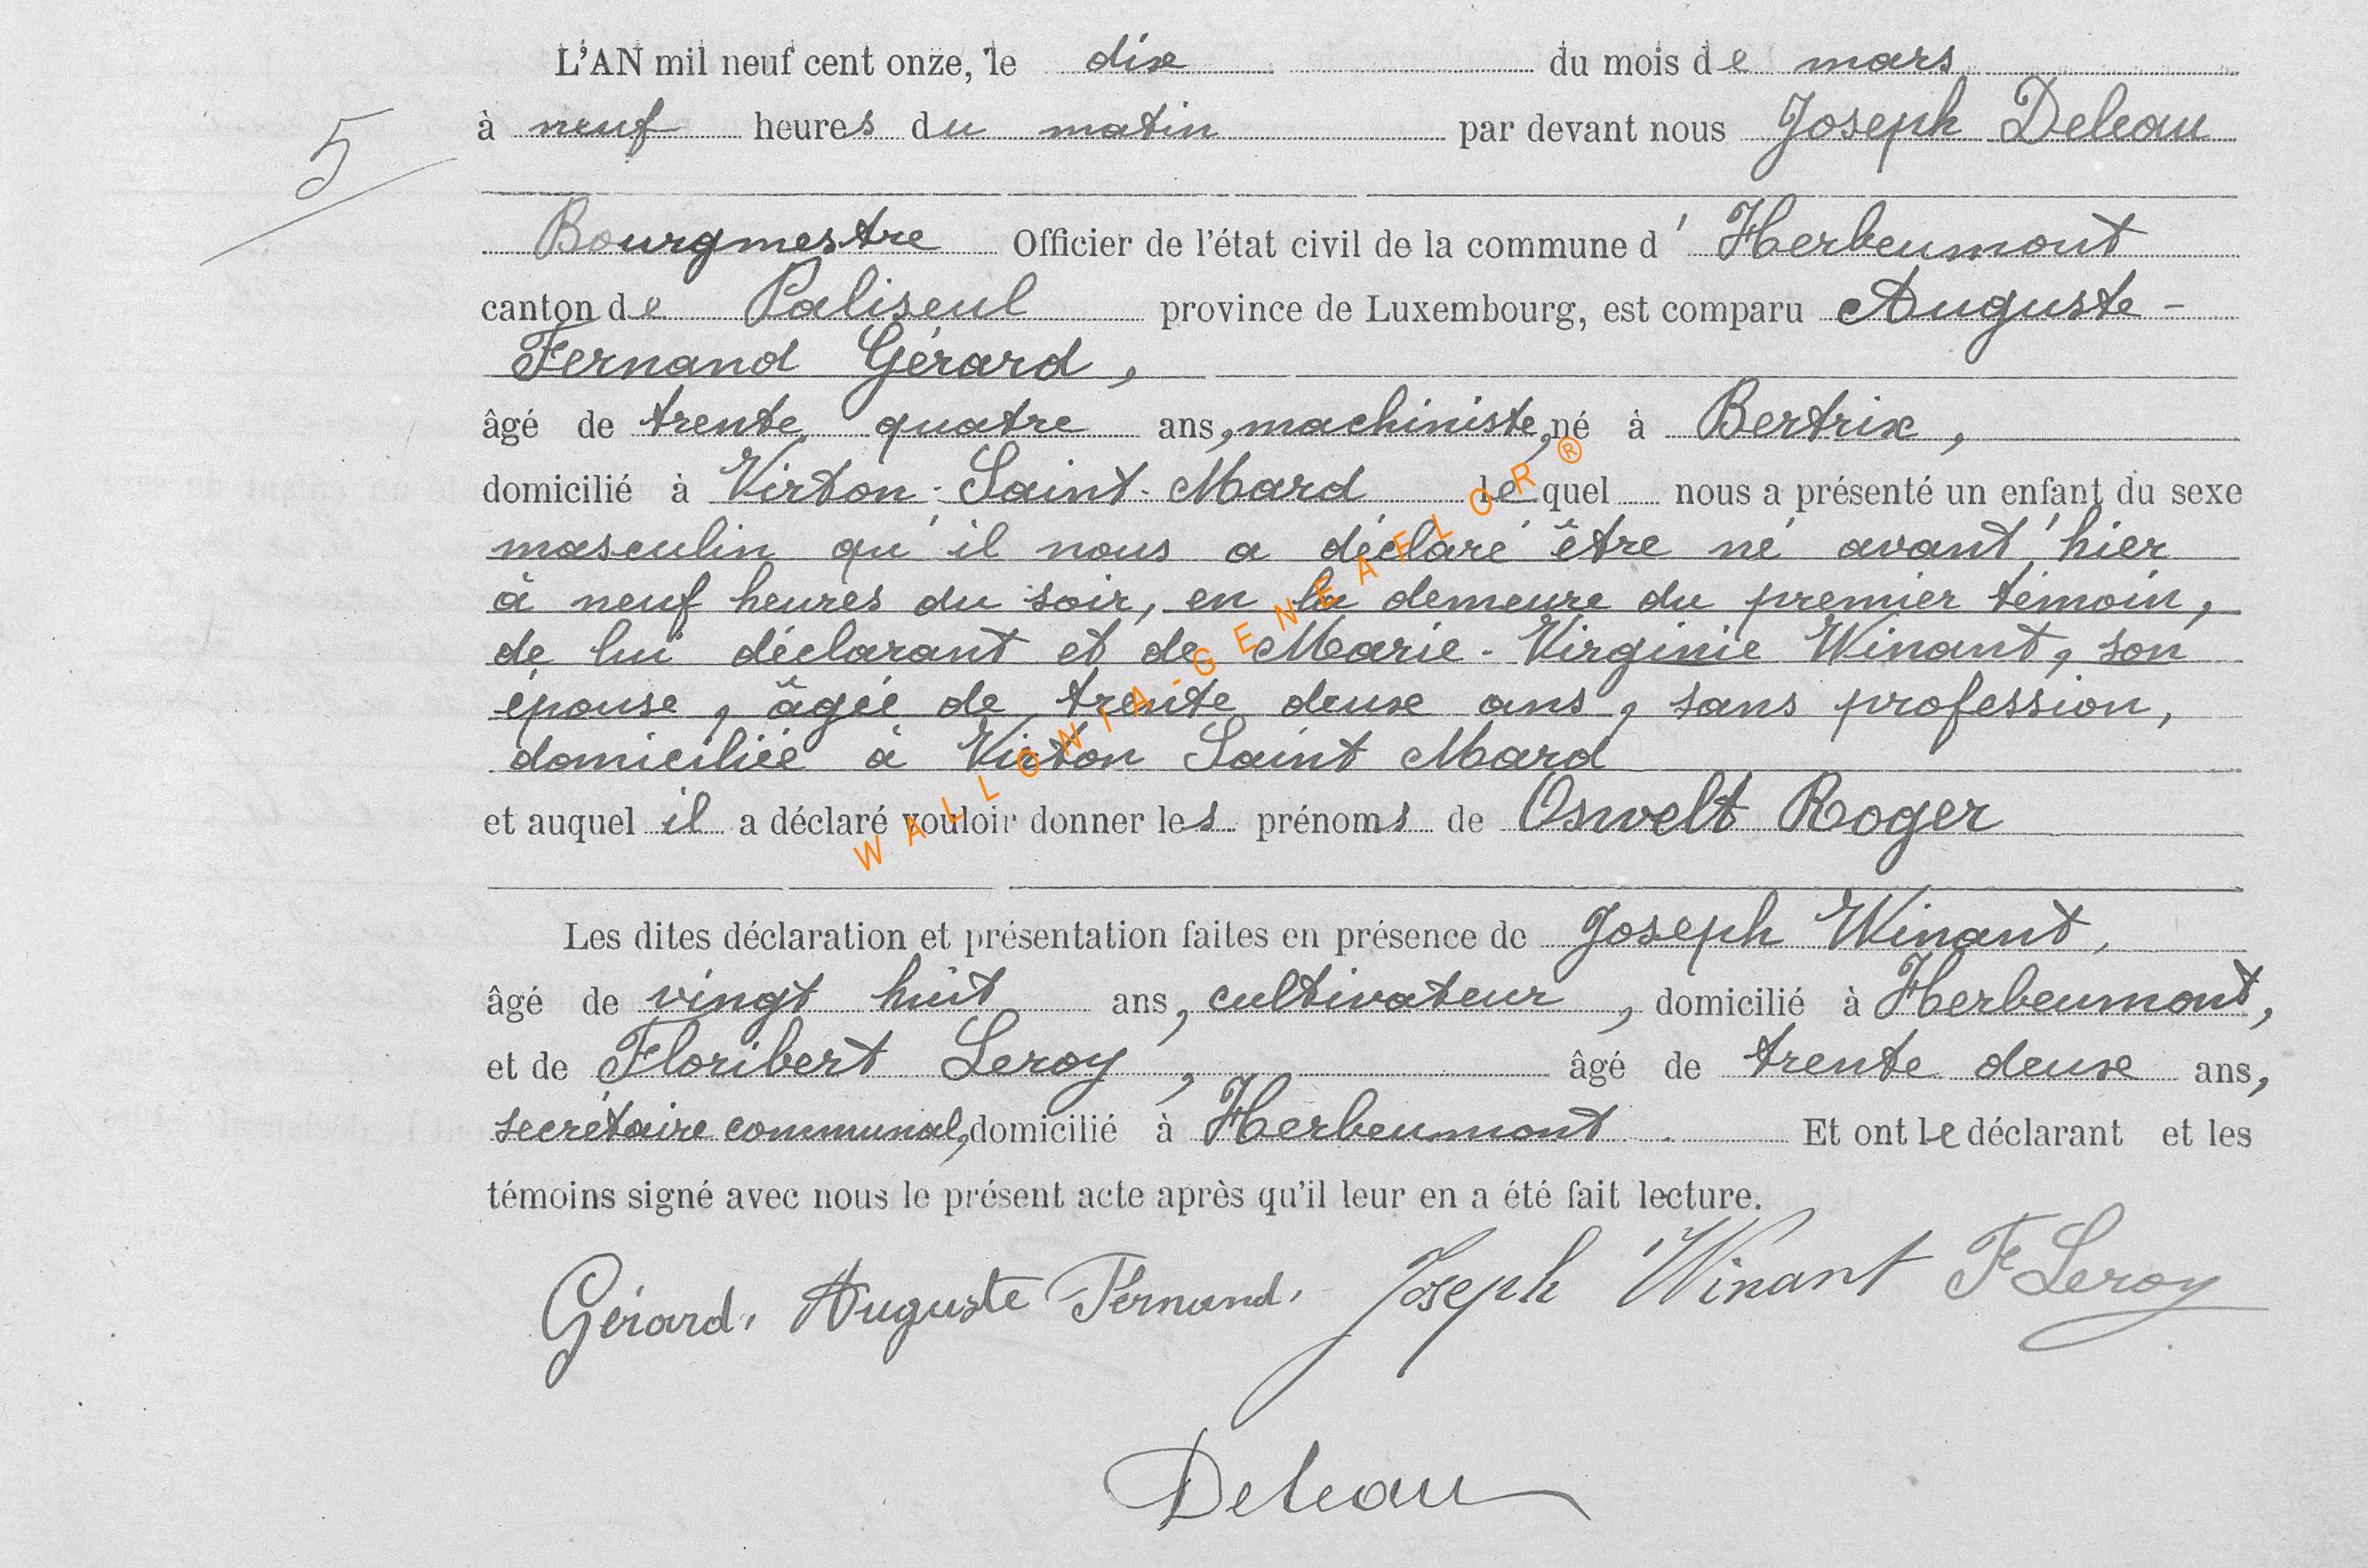 L'AN mil neuf cent onze, le dix du mois de mars
5
à neuf heures du matin par devant nous Joseph Deleau
Bourgmestre Officier de l'état civil de la commune d' Herbeumont
canton de Paliseul province de Luxembourg, est comparu Auguste-
Fernand Gérard,
âgé de trente quatre ans, machiniste, né à Bertrix,
domicilié à Virton-Saint-Mard lequel nous a présenté un enfant du sexe
masculin qu'il nous a déclaré être né avant'hier
à neuf heures du soir, en la demeure du premier témoin,
de lui déclarant et de Marie-Virginie Winant, son
épouse, âgée de trente deux ans, sans profession,
domiciliée à Virton Saint Mard
et auquel il a déclaré vouloir donner les prénoms de Oswelt Roger
Les dites déclaration et présentation faites en présence de Joseph Winant,
âgé de vingt huit ans, cultivateur, domicilié à Herbeumont,
et de Floribert Leroy, âgé de trente deux ans,
secrétaire communal, domicilié à Herbeumont. Et ont le déclarant et les
témoins signé avec nous le présent acte après qu'il leur en a été fait lecture.
Gérard, Auguste Fernand. Joseph Winant F Leroy
Deleau
WALLONIA-GENEAFLOR®